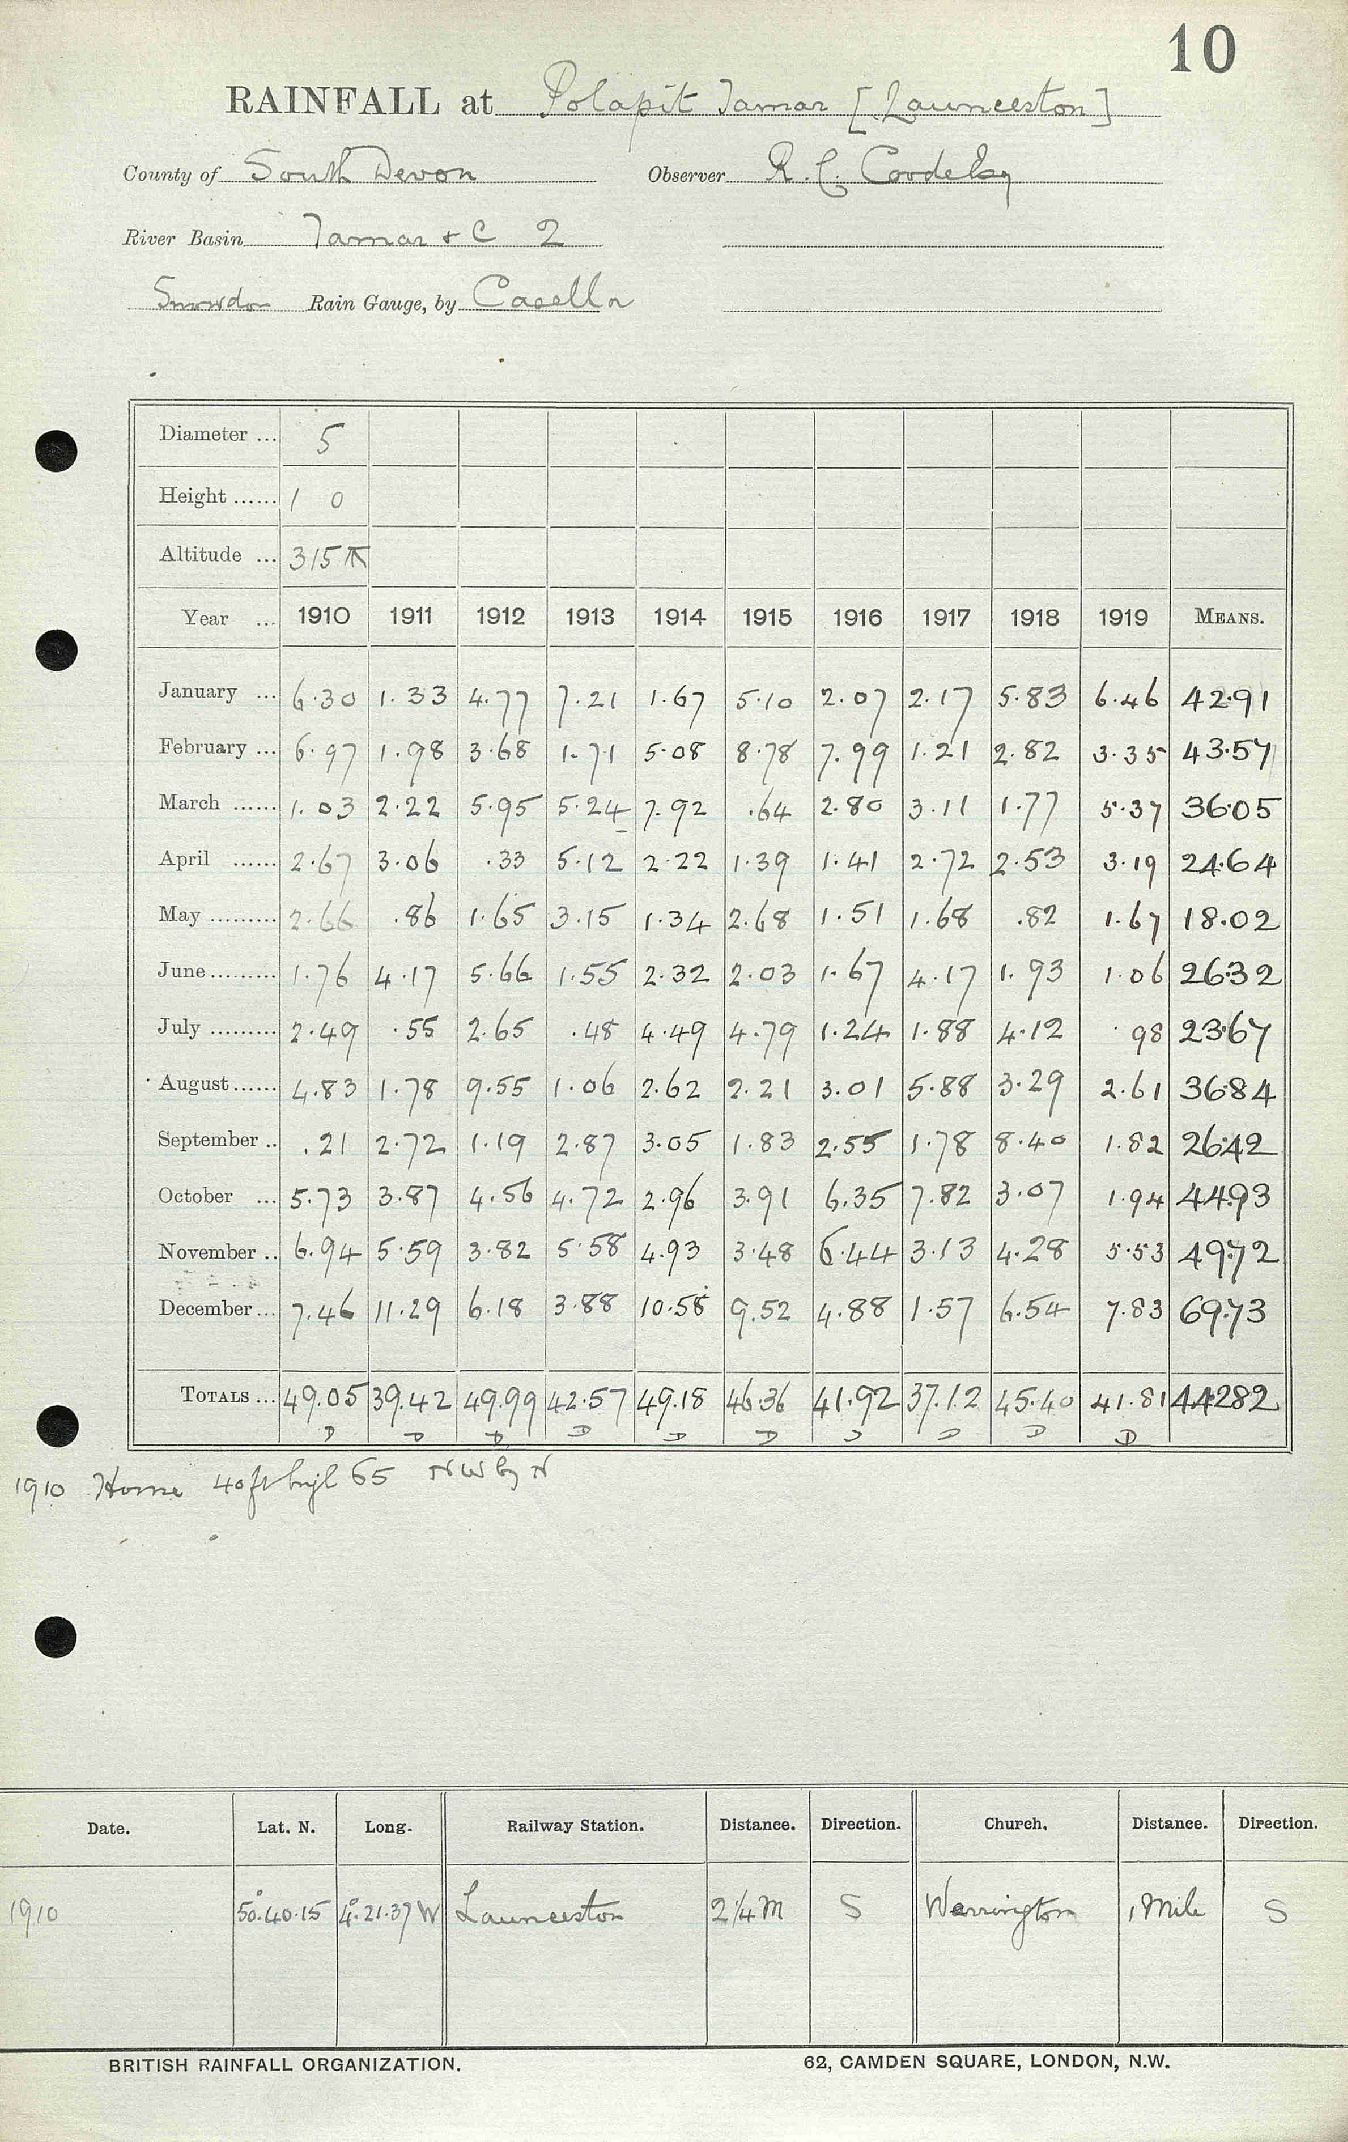 10
RAINFALL at Polapit Tamar [Launceston]
County of South Devon Observer R. C. Coodelay
River Basin Tamar + C 2
Snowdon Rain Gauge, by Casella
Diameter ... 5
Height ...... 1 0
Altitude ... 315
Year ... 1910 1911 1912 1913 1914 1915 1916 1917 1918 1919 MEANS.
January ... 6.30 1.33 4.77 7.21 1.67 5.10 2.07 2.17 5.83 6.46 42.91
February ... 6.97 1.98 3.68 1.71 5.08 8.78 7.99 1.21 2.82 3.35 43.57
March ...... 1.03 2.22 5.95 5.24 7.92 .64 2.80 3.11 1.77 5.37 36.05
April ...... 2.67 3.06 .33 5.12 2.22 1.39 1.41 2.72 2.53 3.19 24.64
May ......... 2.66 .86 1.65 3.15 1.34 2.68 1.51 1.68 .82 1.67 18.02
June ......... 1.76 4.17 5.66 1.55 2.32 2.03 1.67 4.17 1.93 1.06 26.32
July ......... 2.49 .55 2.65 .48 4.49 4.79 1.24 1.88 4.12 .98 23.67
August ...... 4.83 1.78 9.55 1.06 2.62 2.21 3.01 5.88 3.29 2.61 36.84
September .. .21 2.72 1.19 2.87 3.05 1.83 2.55 1.78 8.40 1.82 26.42
October ... 5.73 3.87 4.56 4.72 2.96 3.91 6.35 7.82 3.07 1.94 44.93
November .. 6.94 5.59 3.82 5.58 4.93 3.48 6.44 3.13 4.28 5.53 49.72
December ... 7.46 11.29 6.18 3.88 10.58 9.52 4.88 1.57 6.54 7.83 69.73
TOTALS ... 49.05 39.42 49.99 42.57 49.18 46.36 41.92 37.12 45.40 41.81 442.82
D D D D D D D D D D
1910 Home 40ft high 65 NW by N
Date. Lat. N. Long. Railway Station. Distance. Direction. Church. Distance. Direction.
1910 50°.40.15 4°.21.37 W Launceston 2 1/4 M S Werrington 1 Mile S
BRITISH RAINFALL ORGANIZATION. 62, CAMDEN SQUARE, LONDON, N.W.